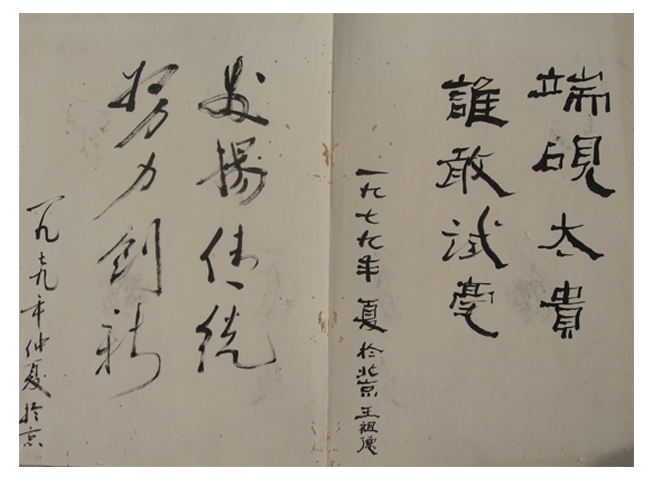 端硯太貴
誰敢試毫
一九七九年夏於北京王祖德
发揚传統
努力創新
一九七九年仲夏於京